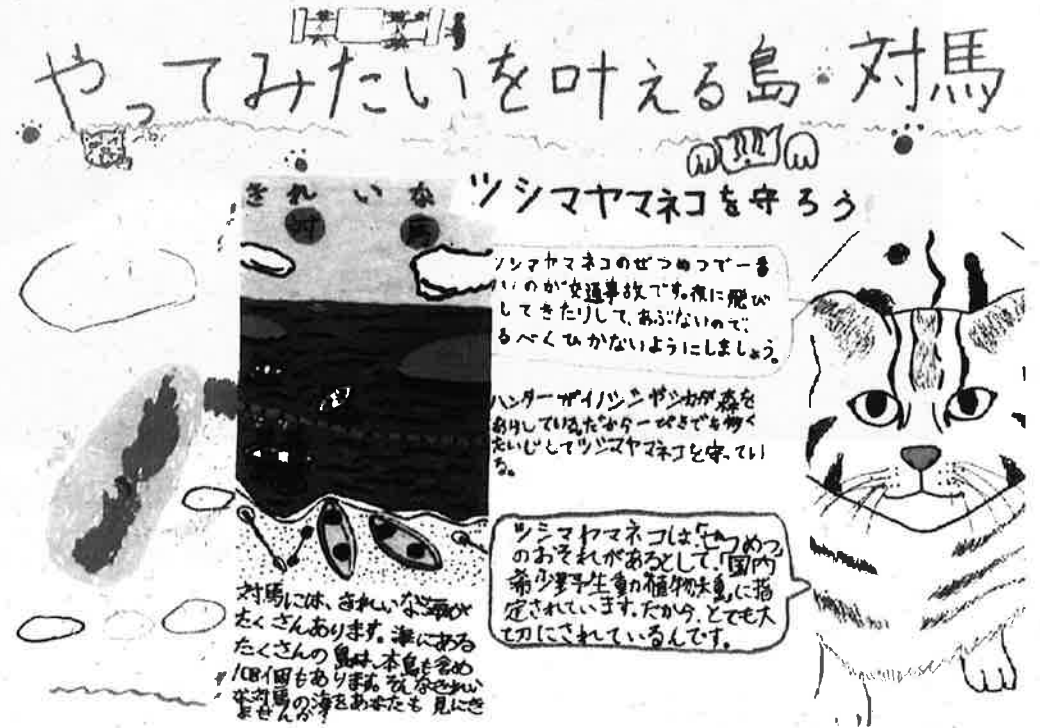 やってみたいを叶える島・対馬
ツシマヤマネコを守ろう
きれいな
対馬
ツシマヤマネコのぜつめつで一番
いのが交通事故です。夜に飛び
してきたりして、あぶないので、
るべくひかないようにしましょう。
ハンターがイノシシやシカが森を
あらしているだから一ぴきでも多く
たいじしてツシマヤマネコを守ってい
る。
ツシマヤマネコは「ぜつめつ」
のおそれがあるとして、「国内
希少野生動植物種」に指
定されています。だから、とても大
切にされているんです。
対馬には、きれいな海が
たくさんあります。海にある
たくさんの島は、本島も含め
108個もあります。そんなきれい
な対馬の海をあなたも見にき
ませんか?